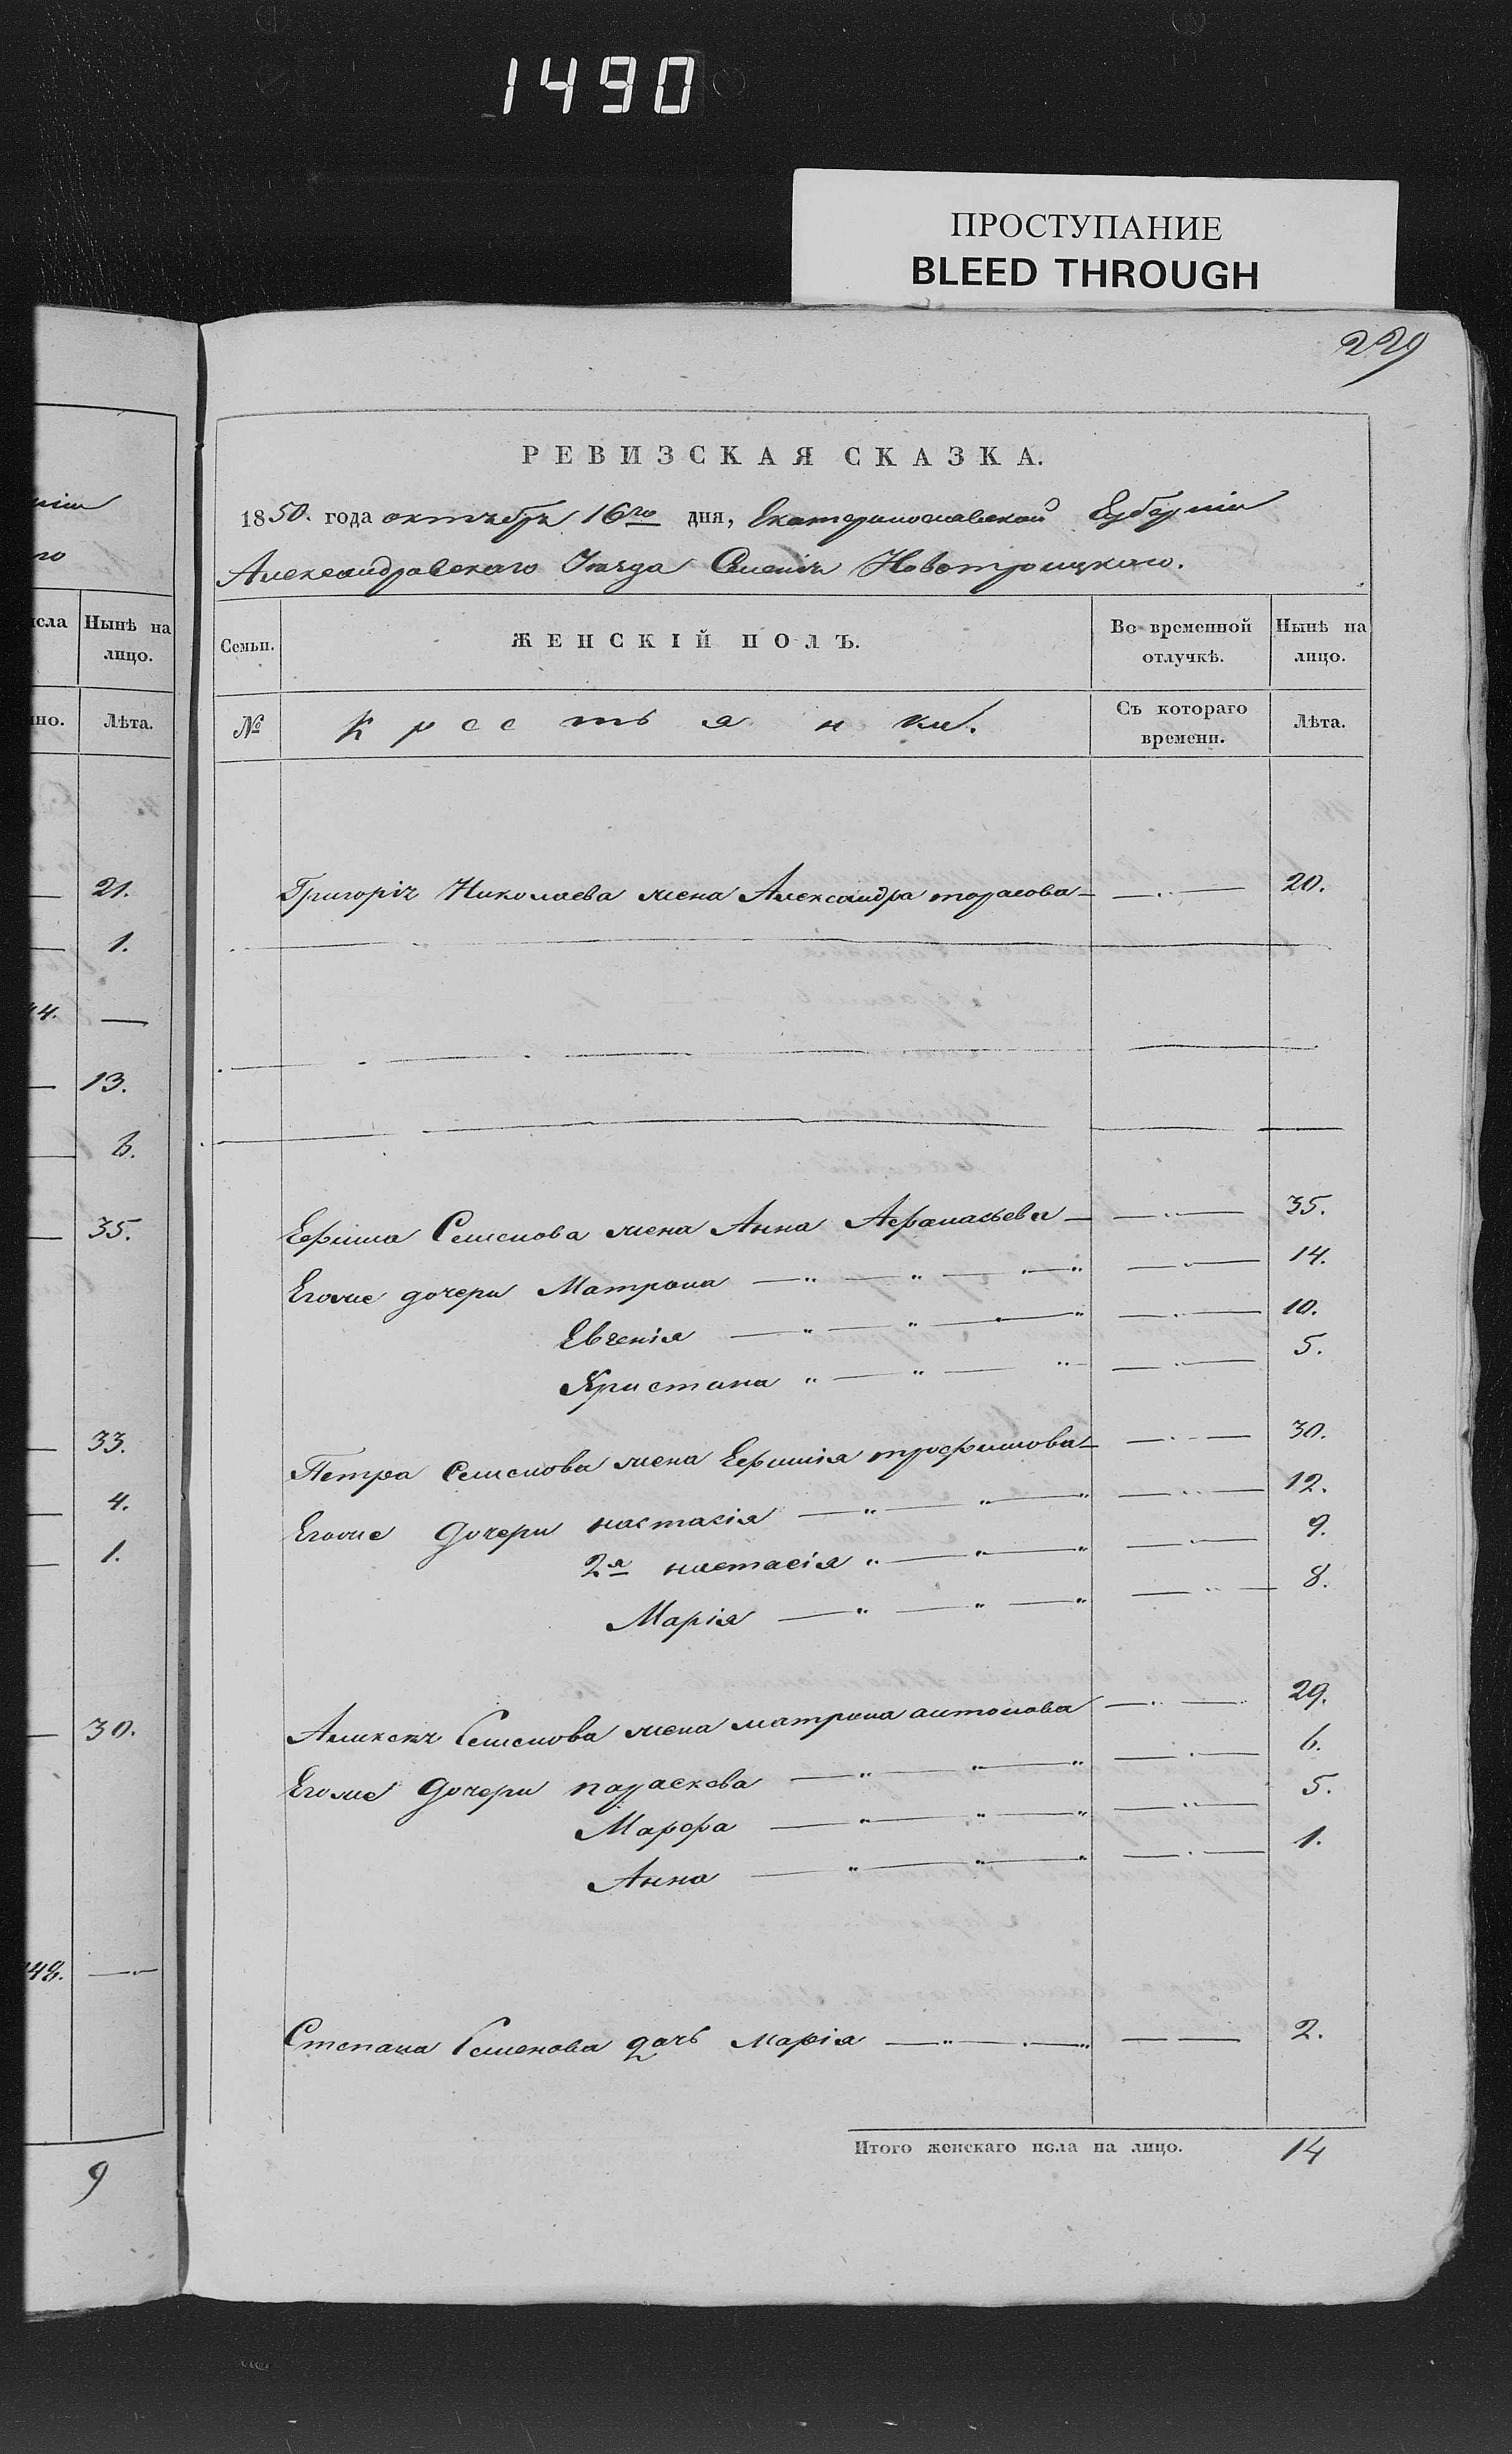 1490
ПРОСТУПАНИЕ
BLEED THROUGH
229
РЕВИЗСКАЯ СКАЗКА.
1850. года октябрѧ 16го дня, Екатеринославской Губерніи
Александравскаго Уѣзда Селеніѧ Новотроицкаго.
Семьи.
ЖЕНСКІЙ ПОЛЪ.
Во временной отлучкѣ.
Нынѣ на лицо.
№
Крестьянки.
Съ котораго времени.
Лѣта.
Григоріѧ Николаева жена Александра тарасова — 20.
Ефима Семенова жена Анна Афанасьева — 35.
Егоже дочери Матрона — 14.
Евгенія — 10.
Христина — 5.
Петра Семенова жена Ефимія трофимова — 30.
Егоже дочери настасія — 12.
2я настасія — 9.
Марія — 8.
Аликсѣѧ Семенова жена матрона антонова — 29.
Егоже дочери параскева — 6.
Марфа — 5.
Анна — 1.
Степана Семенова дочь Марія — 2.
Итого женскаго пола на лицо. 14
Нынѣ на
лицо.
Лѣта.
21.
1.
44. —
13.
6.
35.
33.
4.
1.
30.
9